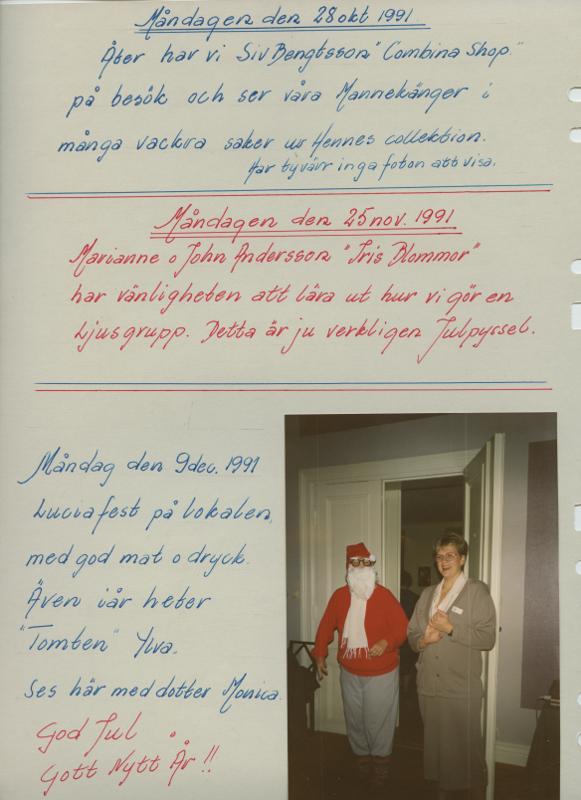 Måndagen den 28 okt 1991.
Åter har vi Siv Bengtsson "Combina Shop"
på besök och ser våra Mannekänger i
många vackra saker ur Hennes collektion.
Har tyvärr inga foton att visa.
Måndagen den 25 nov. 1991
Marianne o John Andersson "Iris Blommor"
har vänligheten att lära ut hur vi gör en
Ljusgrupp. Detta är ju verkligen Julpyssel.
Måndag den 9 dec. 1991
Luciafest på lokalen,
med god mat o dryck.
Även i år heter
"Tomten" Ylva.
Ses här med dotter Monica.
God Jul o
Gott Nytt År!!